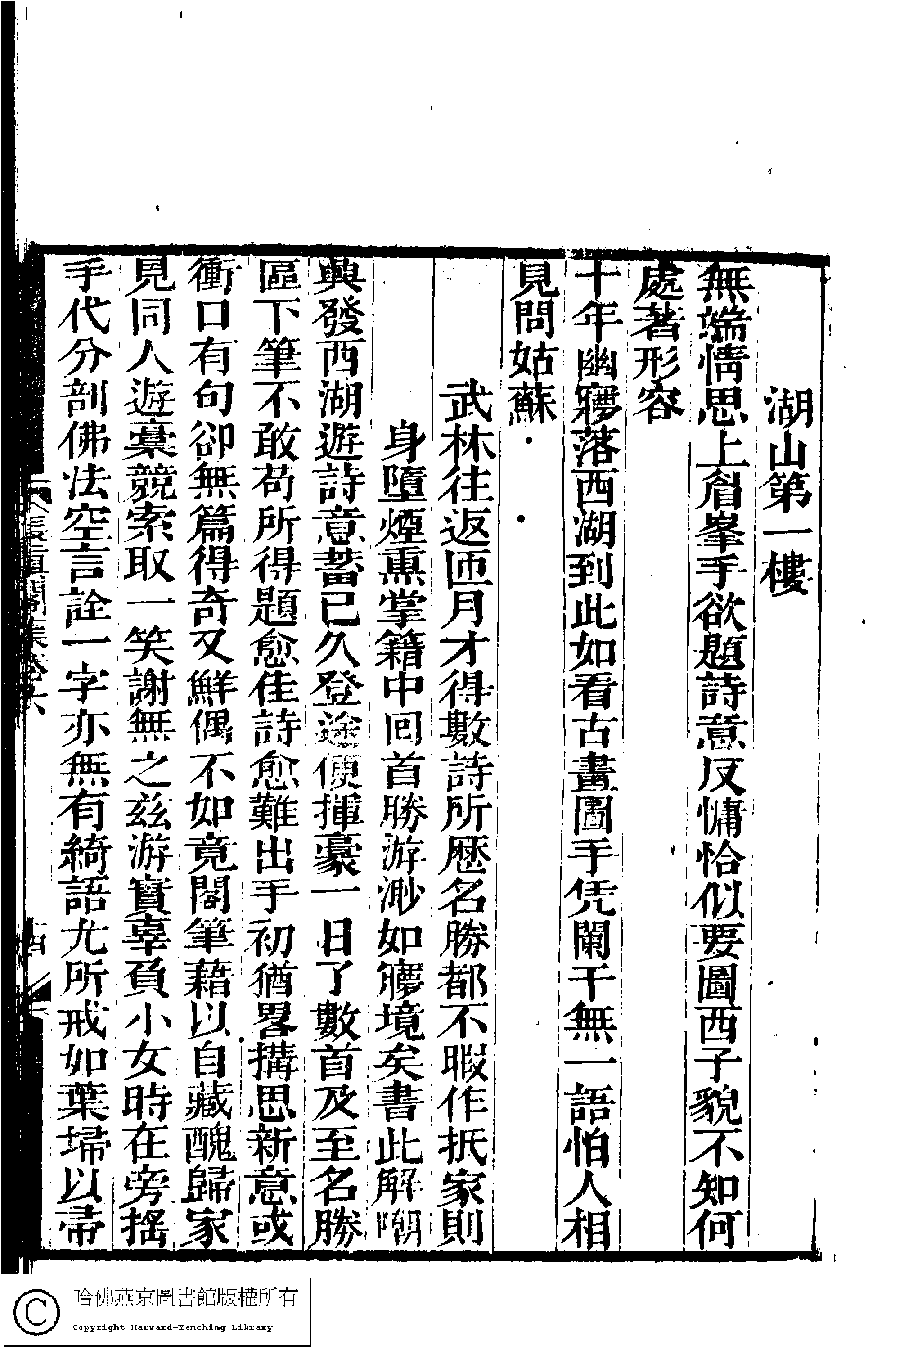 湖山第一樓
無端情思上眉峯手欲題詩意反慵恰似要圖西子貌不知何
處著形容
十年幽夢落西湖到此如看古畫圖手凭闌干無一語怕人相
見問姑蘇
武林往返匝月才得數詩所歷名勝都不暇作抵家則
身墮煙熏掌籍中回首勝游渺如夢境矣書此解嘲
興發西湖遊詩意蓄已久登途便揮豪一日了數首及至名勝
區下筆不敢苟所得題愈佳詩愈難出手初猶畧搆思新意或
衝口有句卻無篇得奇又鮮偶不如竟閣筆藉以自藏醜歸家
見同人遊稾競索取一笑謝無之兹游實辜負小女時在旁搖
手代分剖佛法空言詮一字亦無有綺語尤所戒如葉埽以帚
長真閣集卷六
十四
哈佛燕京圖書館版權所有
Copyright Harvard-Yenching Library